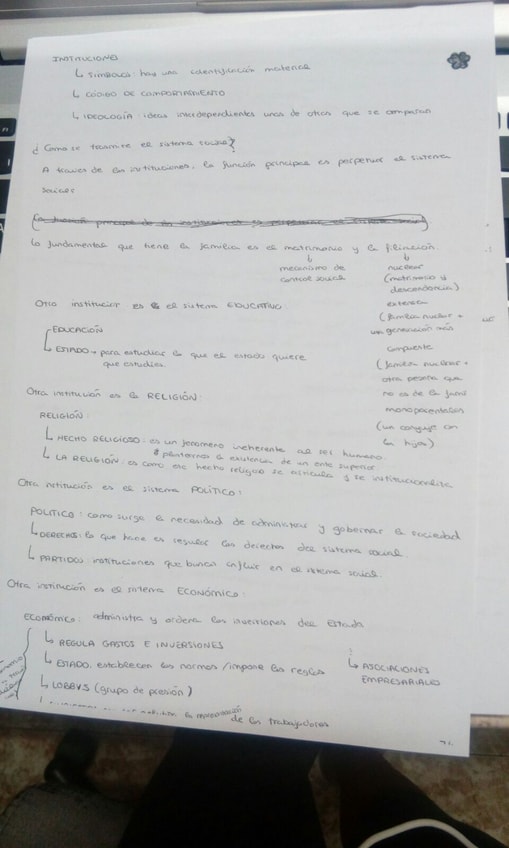 INSTITUCIONES
↳ SIMBOLOS: hay una identificación material
↳ CÓDIGO DE COMPORTAMIENTO
↳ IDEOLOGÍA: ideas interdependientes unas de otras que se comparten
¿Como se trasmite el sistema social?
A traves de las instituciones, la función principal es perpetuar el sistema
social
Lo fundamental que tiene la familia es el matrimonio y la filiación.
↓ mecanismo de
control social
↓ nuclear
(matrimonio y
descendencia)
extensa
(familia nuclear +
una generación más
compuesta
(familia nuclear +
otra persona que
no es de la fami
monoparentales
(un conyuge con
los hijos)
Otra institucion es el sistema EDUCATIVO:
EDUCACIÓN
↳ ESTADO → para estudiar lo que el estado quiere
que estudies.
Otra institución es la RELIGIÓN:
RELIGIÓN:
↳ HECHO RELIGIOSO: es un fenomeno inherente al ser humano.
plantearnos la existencia de un ente superior.
↳ LA RELIGIÓN: es como ese hecho religioso se articula y se institucionaliza
Otra institución es el sistema POLÍTICO:
POLÍTICO: como surge la necesidad de administrar y gobernar la sociedad
↳ DERECHOS: lo que hace es regular los derechos del sistema social.
↳ PARTIDOS: instituciones que buscan influir en el sistema social.
Otra institución es el sistema ECONÓMICO:
ECONÓMICO: administra y ordena las inversiones del Estado
↳ REGULA GASTOS E INVERSIONES
↳ ESTADO: establecen las normas / impone las reglas
↳ ASOCIACIONES
EMPRESARIALES
↳ LOBBYS (grupo de presión)
la representación
de los trabajadores